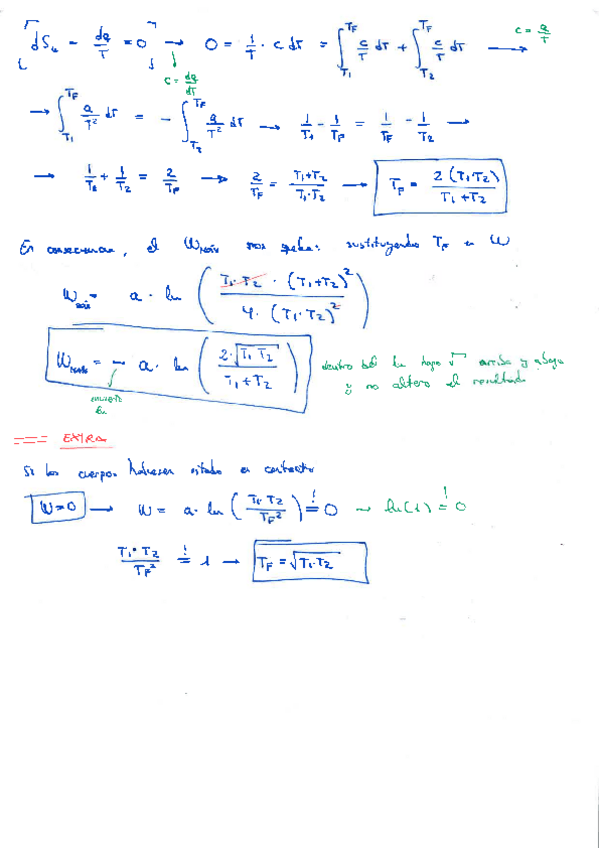 dSu = dq/T = 0 → 0 = 1/T · c dT = ∫_{T1}^{TF} c/T dT + ∫_{T2}^{TF} c/T dT → c = a/T
c = dq/dT
→ ∫_{T1}^{TF} a/T² dT = - ∫_{T2}^{TF} a/T² dT → 1/T1 - 1/TF = 1/TF - 1/T2 →
→ 1/T1 + 1/T2 = 2/TF → 2/TF = T1+T2/T1·T2 → TF = 2(T1·T2)/T1+T2
En consecuencia, el Wmáx nos queda: sustituyendo TF en W
Wmáx = a · ln ( T1·T2 · (T1+T2)² / 4·(T1·T2)² )
Wmáx = - a · ln ( 2·√T1·T2 / T1+T2 ) dentro del ln hago √ arriba y abajo
y no altero el resultado
invierte
ln
=== EXTRA
Si los cuerpos hubiesen estado en contacto
W=0 → W = a·ln ( T1·T2 / TF² ) =! 0 → ln(1) =! 0
T1·T2 / TF² =! 1 → TF = √T1·T2